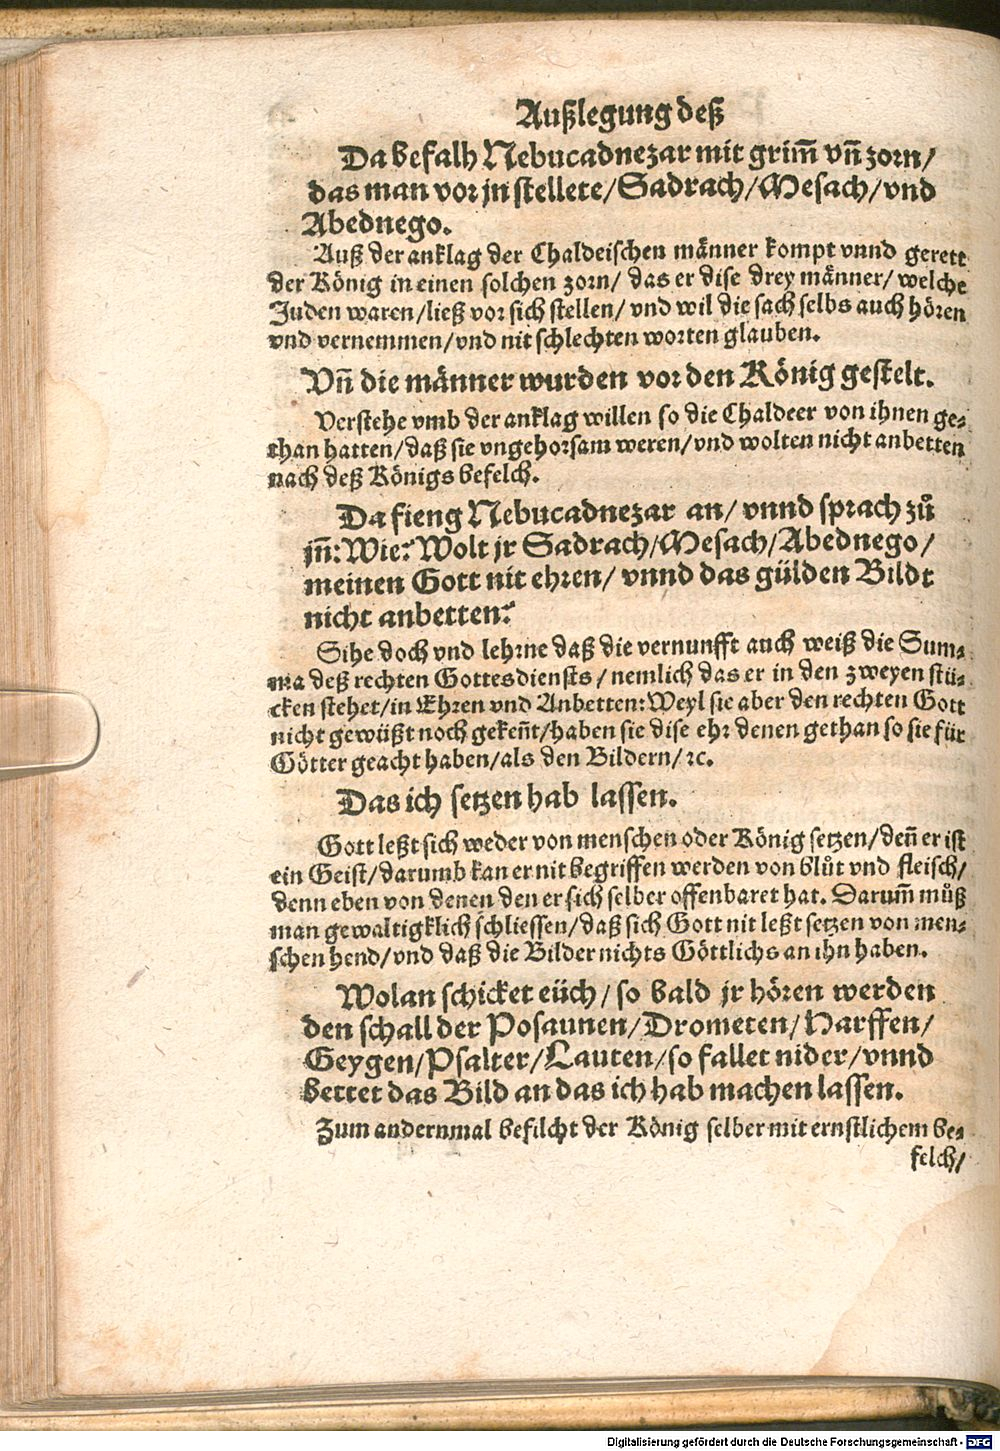 Außlegung deß
Da befalh Nebucadnezar mit grim̃ vñ zorn/
das man vor jn stellete/Sadrach/Mesach/vnd
Abednego.
Auß der anklag der Chaldeischen männer kompt vnnd gerett
der König in einen solchen zorn/ das er dise drey männer/ welche
Juden waren/ließ vor sich stellen/ vnd wil die sach selbs auch hören
vnd vernemmen/vnd nit schlechten worten glauben.
Vñ die männer wurden vor den König gestelt.
Verstehe vmb der anklag willen so die Chaldeer von ihnen ge-
than hatten/daß sie vngehorsam weren/vnd wolten nicht anbetten
nach deß Königs befelch.
Da fieng Nebucadnezar an/ vnnd sprach zů
jñ: Wie? Wolt jr Sadrach/Mesach/Abednego/
meinen Gott nit ehren/ vnnd das gülden Bildt
nicht anbetten?
Sihe doch vnd lehrne daß die vernunfft auch weiß die Sum-
ma deß rechten Gottesdiensts/ nemlich das er in den zweyen stü-
cken stehet/in Ehren vnd Anbetten: Weyl sie aber den rechten Gott
nicht gewüßt noch gekeñt/haben sie dise ehr denen gethan so sie für
Götter geacht haben/als den Bildern/ ꝛc.
Das ich setzen hab lassen.
Gott leßt sich weder von menschen oder König setzen/deñ er ist
ein Geist/darumb kan er nit begriffen werden von blůt vnd fleisch/
denn eben von denen den er sich selber offenbaret hat. Darum̃ můß
man gewaltigklich schliessen/daß sich Gott nit leßt setzen von men-
schen hend/vnd daß die Bilder nichts Göttlichs an ihn haben.
Wolan schicket eüch/ so bald jr hören werden
den schall der Posaunen/Drometen/Harffen/
Geygen/Psalter/Lauten/so fallet nider/vnnd
bettet das Bild an das ich hab machen lassen.
Zum andernmal befilcht der König selber mit ernstlichem be-
felch/
Digitalisierung gefördert durch die Deutsche Forschungsgemeinschaft - DFG